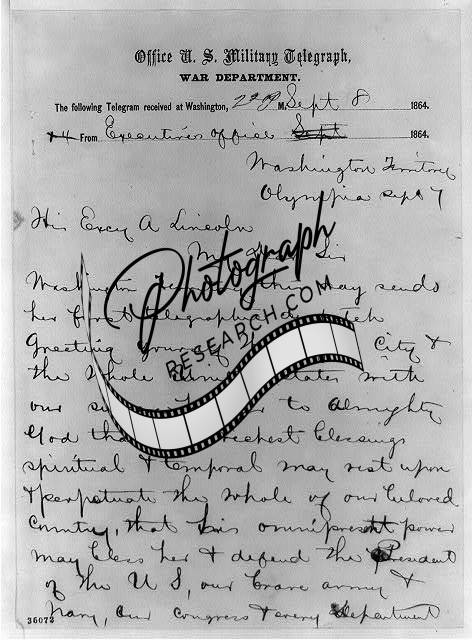 Office U. S. Military Telegraph,
WAR DEPARTMENT.
The following Telegram received at Washington, M. Sept 8 1864.
From Executives office Sept 1864.
Washington Territory
Olympia Sept 7
His Excy A Lincoln
Sir
Washington may sends
her first telegraphic
Greeting City &
the whole with
our to Almighty
God richest blessings
spiritual & temporal may rest upon
& perpetuate the whole of our beloved
Country, that his omnipresent power
may bless her & defend the President
of the U S, our brave army &
Navy, our Congress & every Department
36073
Photograph
RESEARCH.COM